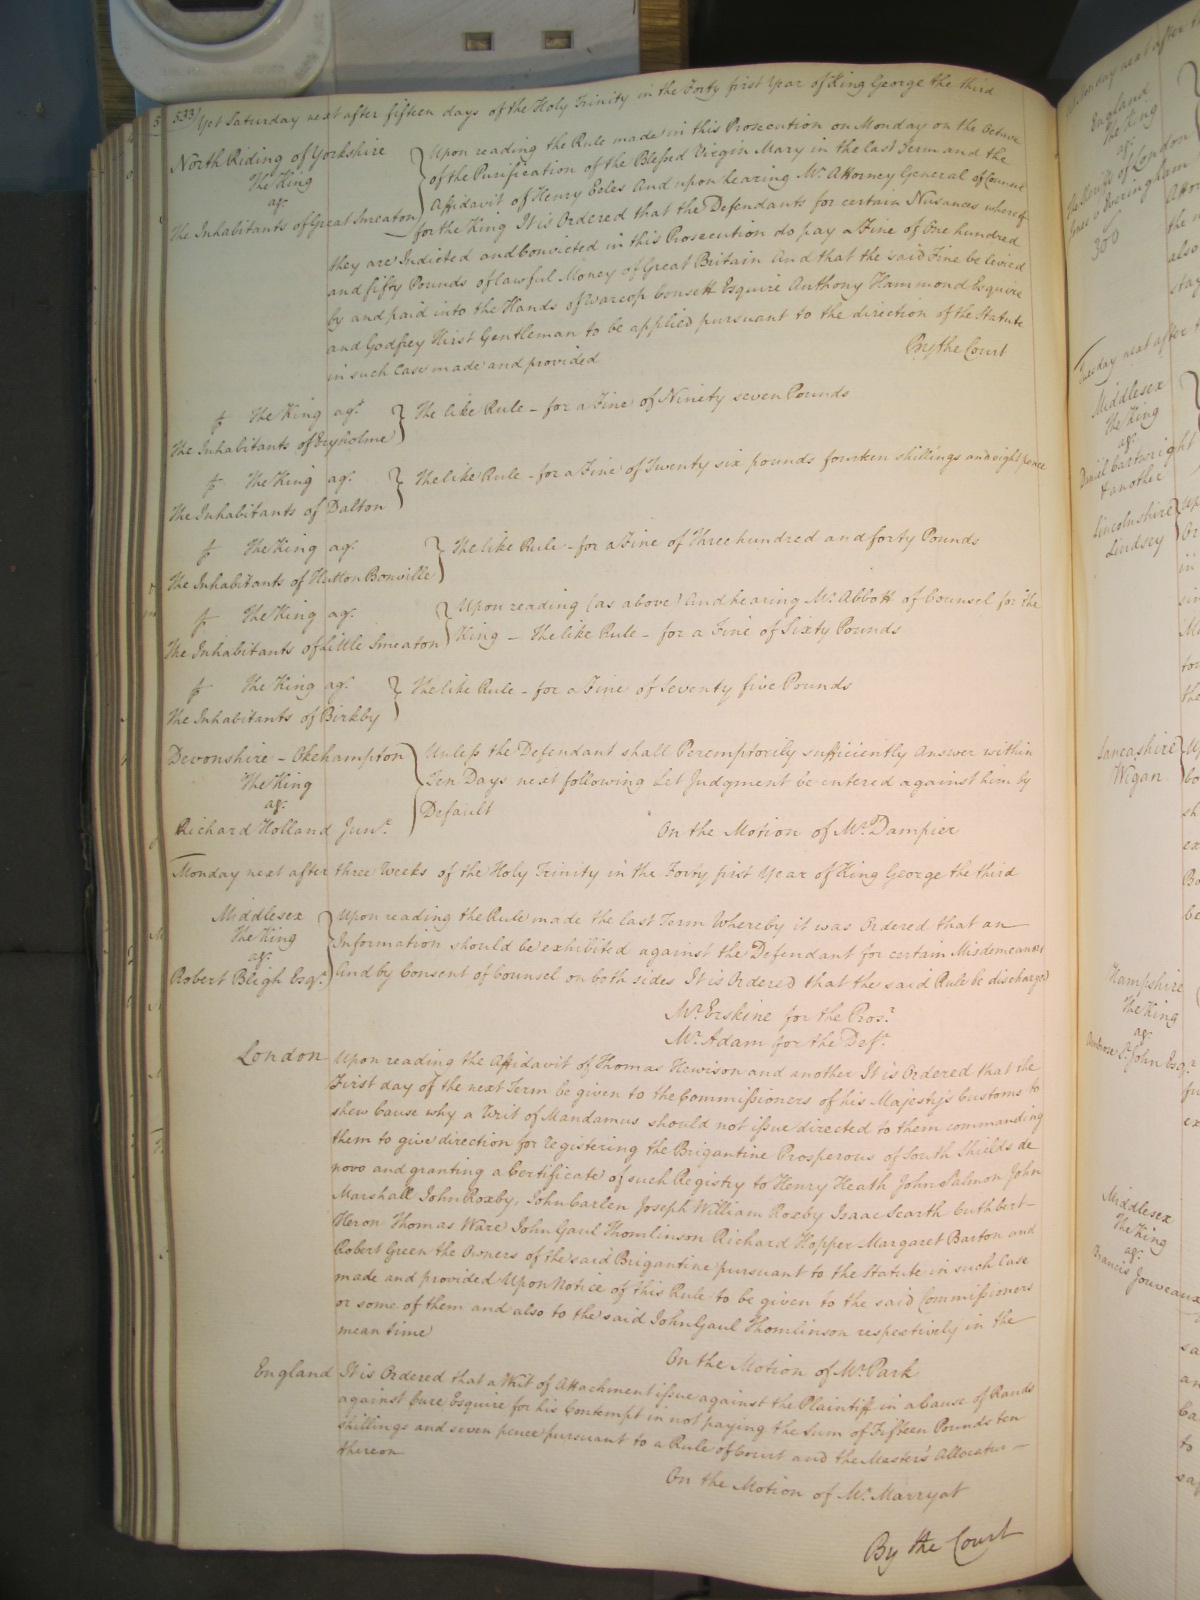 533
Yet Saturday next after fifteen days of the Holy Trinity in the Forty first Year of King George the third
North Riding of Yorkshire
The King
agt.
The Inhabitants of Great Smeaton
Upon reading the Rule made in this Prosecution on Monday on the Octave
of the Purification of the Blessed Virgin Mary in the last Term and the
Affidavit of Henry Eeles And upon hearing Mr. Attorney General of Counsel
for the King It is Ordered that the Defendants for certain Nusances whereof
they are Indicted and Convicted in this Prosecution do pay a Fine of One hundred
and fifty Pounds of lawful Money of Great Britain And that the said Fine be levied
by and paid into the Hands of Warcop Consett Esquire Anthony Hammond Esquire
and Godfrey Hirst Gentleman to be applied pursuant to the direction of the Statute
in such Case made and provided
By the Court
The King agt.
The Inhabitants of Eryholme
The like Rule - for a Fine of Ninety seven Pounds
The King agt.
The Inhabitants of Dalton
The like Rule - for a Fine of Twenty six pounds fourteen shillings and eight pence
The King agt.
The Inhabitants of Hutton Bonville
The like Rule - for a Fine of Three hundred and forty Pounds
The King agt.
The Inhabitants of Little Smeaton
Upon reading (as above) And hearing Mr. Abbott of Counsel for the
King - The like Rule - for a Fine of Sixty Pounds
The King agt.
The Inhabitants of Birkby
The like Rule - for a Fine of Seventy five Pounds
Devonshire - Okehampton
The King
agt.
Richard Holland Junr.
Unless the Defendant shall Peremptorily sufficiently Answer within
Ten Days next following Let Judgment be entered against him by
Default
On the Motion of Mr. Dampier
Monday next after three Weeks of the Holy Trinity in the Forty first Year of King George the third
Middlesex
The King
agt.
Robert Bligh Esqr.
Upon reading the Rule made the last Term Whereby it was Ordered that an
Information should be exhibited against the Defendant for certain Misdemeanors
And by Consent of Counsel on both sides It is Ordered that the said Rule be discharged
Mr. Erskine for the Prosr.
Mr. Adam for the Deft.
London
Upon reading the Affidavit of Thomas Hewison and another It is Ordered that the
First day of the next Term be given to the Commissioners of his Majesty's Customs to
shew Cause why a Writ of Mandamus should not issue directed to them commanding
them to give direction for registering the Brigantine Prosperous of South Shields de
novo and granting a Certificate of such Registry to Henry Heath John Salmon John
Marshall John Roxby, John Carlen Joseph William Roxby Isaac Scarth Cuthbert
Heron Thomas Ware John Gaul Thomlinson Richard Hopper Margaret Barton and
Robert Green the Owners of the said Brigantine pursuant to the Statute in such Case
made and provided Upon Notice of this Rule to be given to the said Commissioners
or some of them and also to the said John Gaul Thomlinson respectively in the
mean time
On the Motion of Mr. Park
England
It is Ordered that a Writ of Attachment issue against the Plaintiff in a Cause of Rands
against Cure Esquire for his Contempt in not paying the Sum of Fifteen Pounds ten
shillings and seven pence pursuant to a Rule of Court and the Master's Allocatur
thereon
On the Motion of Mr. Marryat
By the Court
England
The King
agt.
Sheriff of London
Tuesday next after
Middlesex
The King
agt.
Daniel Cartwright
& another
Lincolnshire
Lindsey
Lancashire
Wigan
Hampshire
The King
agt.
Ambrose St. John Esqr.
Middlesex
The King
agt.
Francis Jouveaux